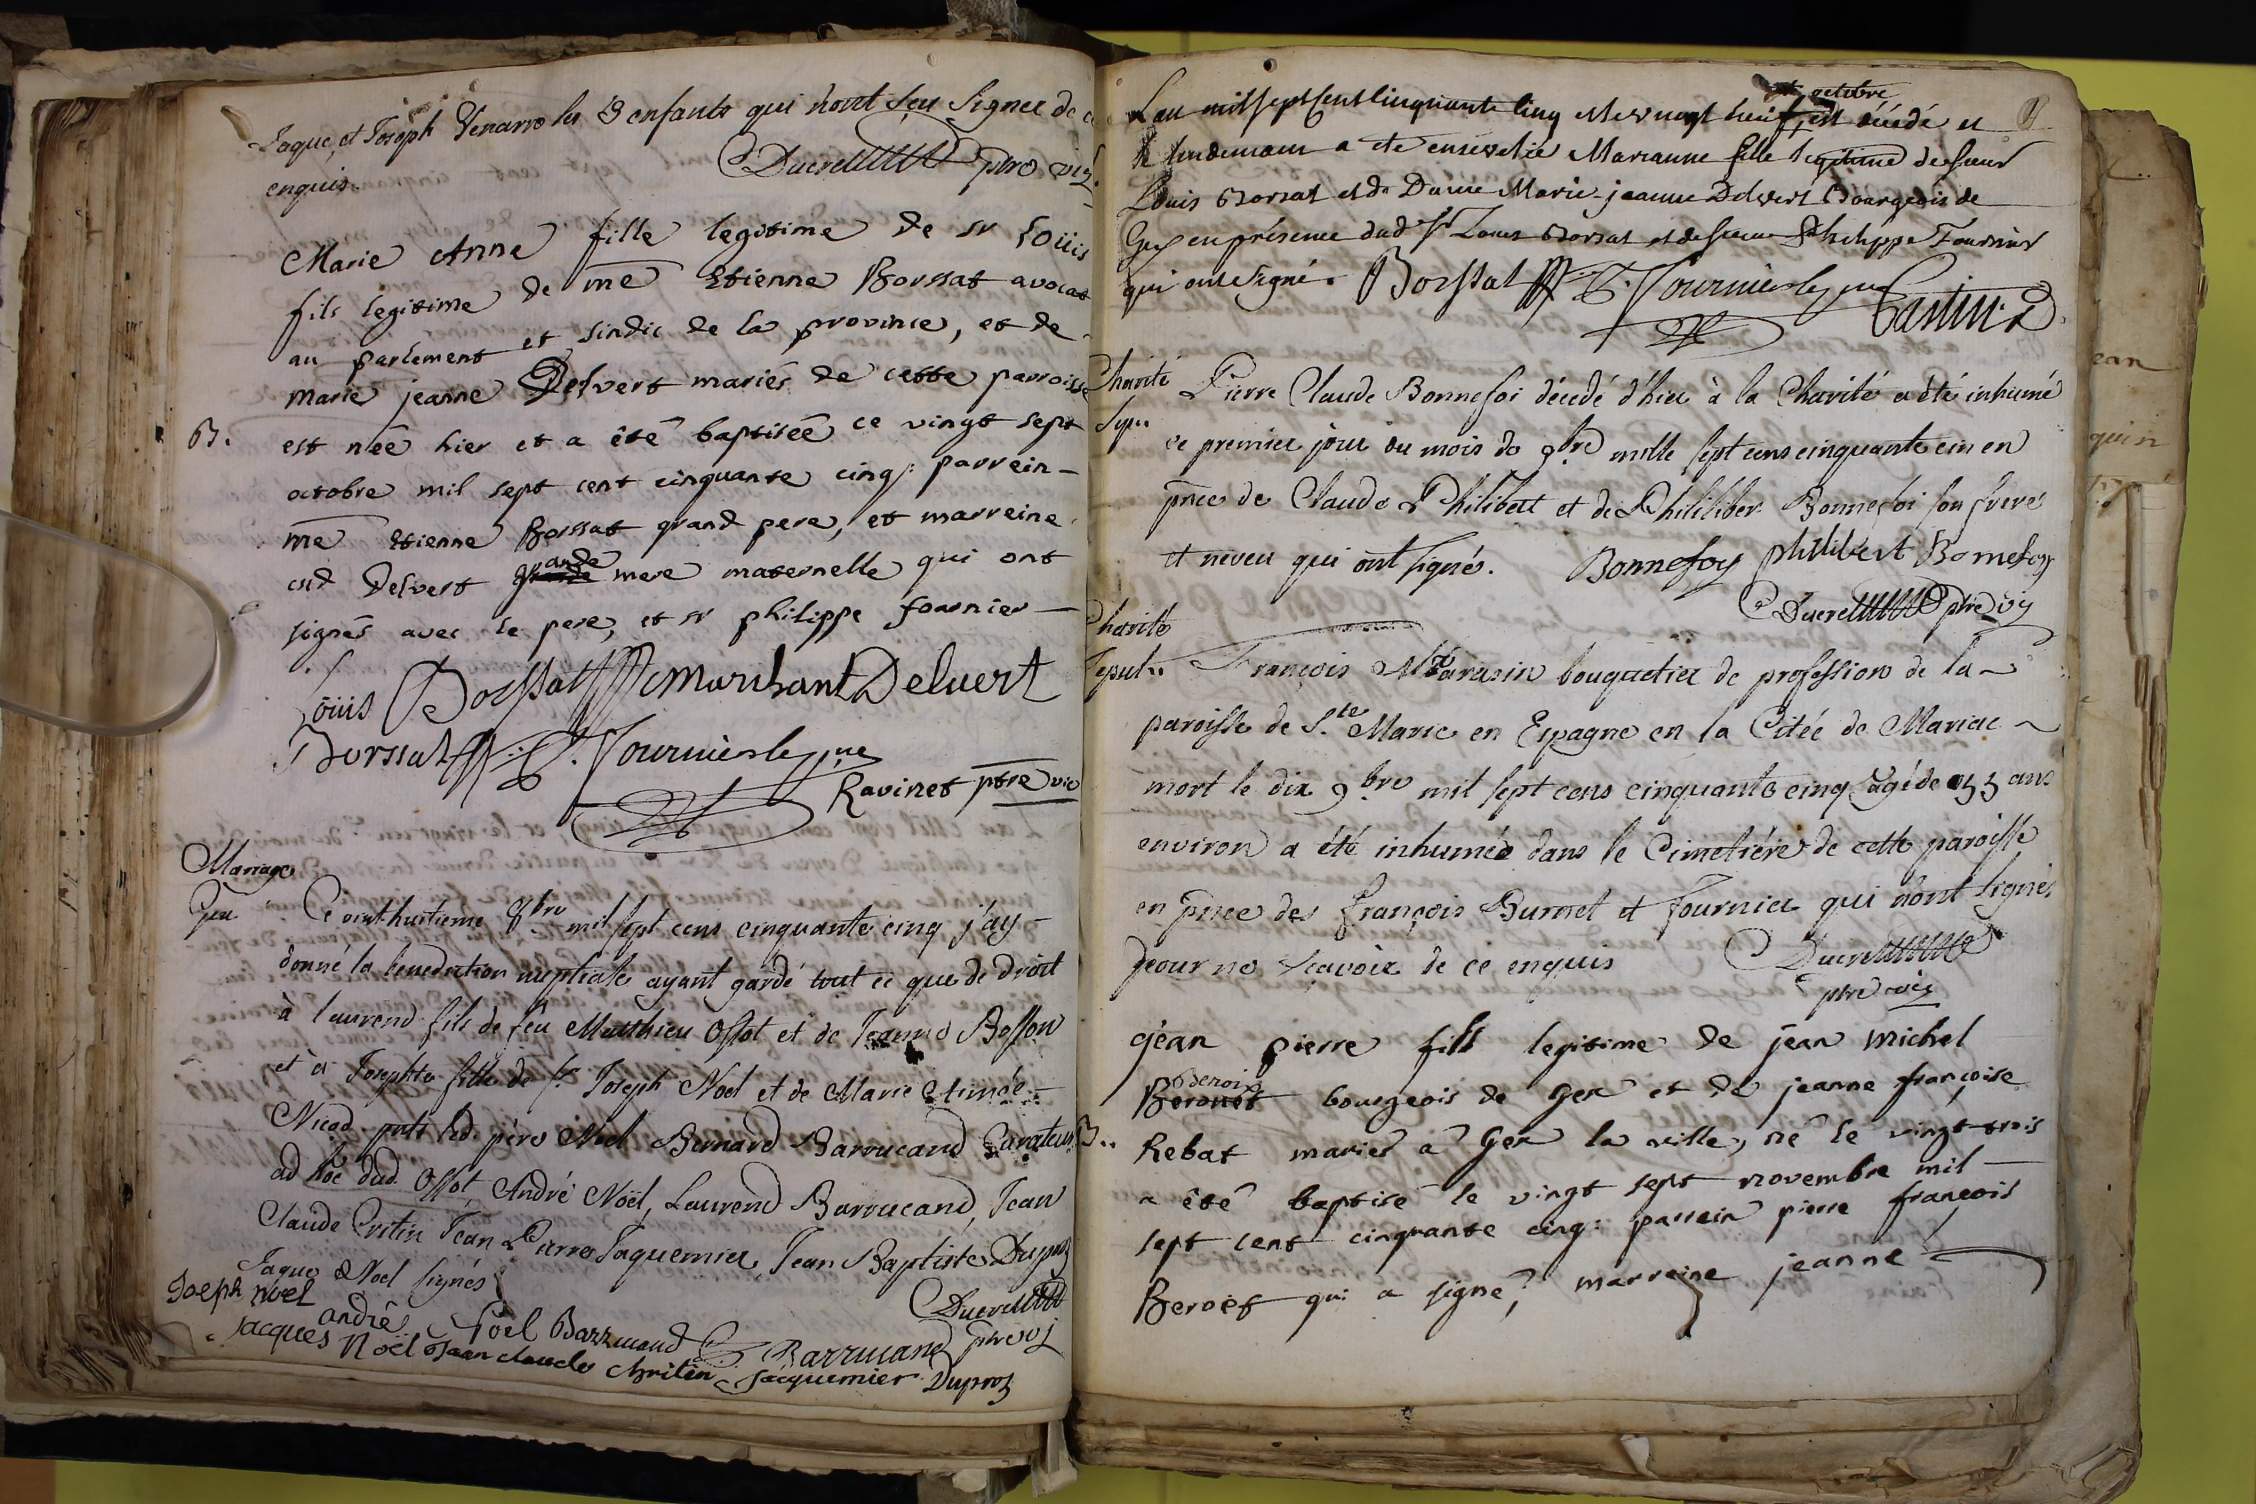 Jaque, et Joseph Venarro les 3 enfants qui n'ont sçu signer de ce
enquis. Ducret ptre vic.
Marie Anne fille legitime de sr Loüis
fils legitime de me Etienne Borssat avocat
au parlement et sindic de la province, et de
marie jeanne Delvert mariés de cette parroisse
B. est née hier et a êtê baptisée ce vingt sept
octobre mil sept cent cinquante cinq: parrein
me Etienne Borssat grand pere, et marreine
Delvert grande mere maternelle qui ont
signés avec le pere, et sr philippe fournier
Loüis Borssat Marchant Deluert
Borssat P. Fournier le jne
Ravinet ptre vic
Mariage
Gex Ce vint huitieme 8bre mil sept cens cinquante cinq j'ay
donné la benediction nuptiale ayant gardé tout ce que de droit
à laurend fils de feu Matthieu Ossot et de Jeanne Bosson
et à Josephte fille de sr Joseph Noel et de Marie Aimée
Nicod pnts led. père Noel Bernard Barrucand Curateur
ad hoc dud. Ossot André Noël, Laurend Barrucand, Jean
Claude Critin Jean Pierre Jaquemier Jean Baptiste Duproz
Jaque Noel signés Ducret
Joseph noel ptre vj
andrê Noel Barrucand Barrucand
jacques Noël Jean claude chritin Jacquemier Duproz
L'an mil sept cent cinquante cinq et le vingt neuf octobre, est décédé et
le lendemain a ete ensevelie Marianne fille legitime de sieur
Louis Borsat et de Dame Marie-jeanne Delvert Bourgeois de
Gex en présence dud. Sr Louis Borsat et de sieur Philippe Fournier
qui ont signé. Borssat P. Fournier le jne Castin
Charité Pierre Claude Bonnefoi décédé d'hier à la Charité a été inhumé
Sepu. ce premier jour du mois de 9bre mille sept cens cinquante cin en
pnce de Claude Philibert et de Philiber Bonnefoi son frere
et neveu qui ont signés. Bonnefoy phillibert Bonnefoy
Ducret ptre vij
Charité
Sepult. François Mararin bouquetier de profession de la
paroisse de Ste Marie en Espagne en la Citée de Mariac
mort le dix 9bre mil sept cens cinquante cinq agé de 53 ans
environ a été inhumée dans le Cimetiére de cette paroisse
en pnce des françois Burnet et fournier qui n'ont signés
pour ne sçavoir de ce enquis Ducret
ptre vic
jean pierre fils legitime de jean michel
Beroüet Benoit bourgeois de Gex et de jeanne françoise
B. Rebat mariés a Gex la ville, né le vingt-trois
a êtê baptisé le vingt sept novembre mil
sept cent cinquante cinq: parrein pierre françois
Beroët qui a signé, marreine jeanne